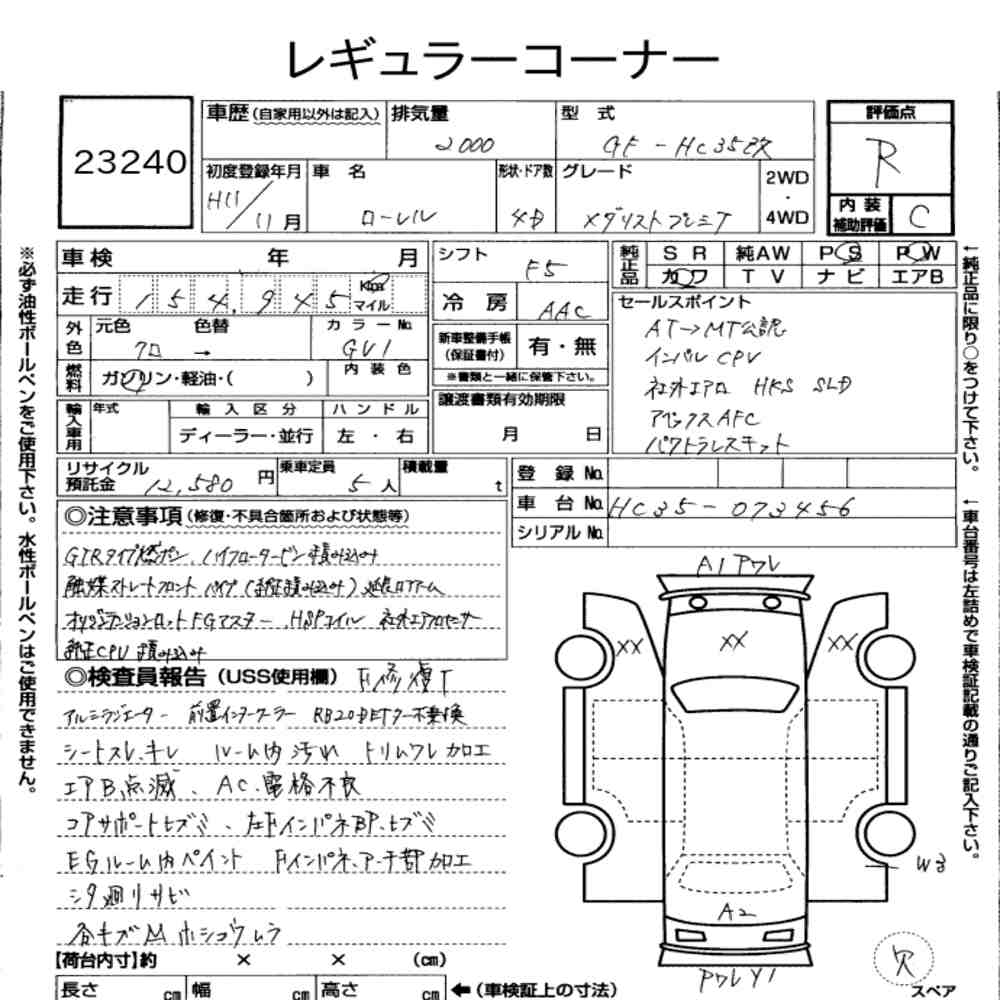 レギュラーコーナー
23240
車歴(自家用以外は記入)
排気量
2000
型式
GF-HC35改
評価点
R
初度登録年月
H11/11月
車名
ローレル
形状・ドア数
4D
グレード
メダリストプレミア
2WD
・
4WD
内装
補助評価
C
※必ず油性ボールペンをご使用下さい。水性ボールペンはご使用できません。
車検 年 月
走行 154,945 Km マイル
外色
元色 色替
クロ →
カラーNo.
GV1
燃料
ガソリン・軽油・( )
内装色
輸入車用
年式
輸入区分
ディーラー・並行
ハンドル
左・右
リサイクル預託金 12,580円
乗車定員
5人
積載量
t
シフト
F5
冷房 AAC
新車整備手帳
(保証書付)
有・無
※書類と一緒に保管下さい。
譲渡書類有効期限
月 日
純正品
SR 純AW PS PW
カワ TV ナビ エアB
セールスポイント
AT→MT公認
インパル CPV
社外エアロ HKS SLD
アペックスAFC
パワトラレスキット
登録No.
車台No. HC35-073456
シリアルNo.
←純正品に限り○をつけて下さい。
←車台番号は左詰めで車検証記載の通りご記入下さい。
◎注意事項(修復・不具合箇所および状態等)
GTRタイプ燃ポン、ハイフロータービン積み込み
触媒ストレートフロントパイプ(純正積み込み)延長ロアアーム
テンションロット FGマスター、HSPコイル 社外エアフロセンサー
純正CPU積み込み
◎検査員報告(USS使用欄) F修復T
アルミラジエーター 前置インタークーラー RB20DETターボ乗換
シートスレ、キレ ルーム内汚れ トリムワレ加工
エアB点滅、AC、電格不良
コアサポートヒズミ、左FインパネBP、ヒズミ
EGルーム内ペイント Fインパネ、アーチ部加工
シタ廻りサビ
各キズ凹ホショウムラ
A1 ワレ
XX
XX
XX
W3
A2
ワレ Y1
欠
スペア
【荷台内寸】約 × × (cm)
長さ cm 幅 cm 高さ cm ←(車検証上の寸法)